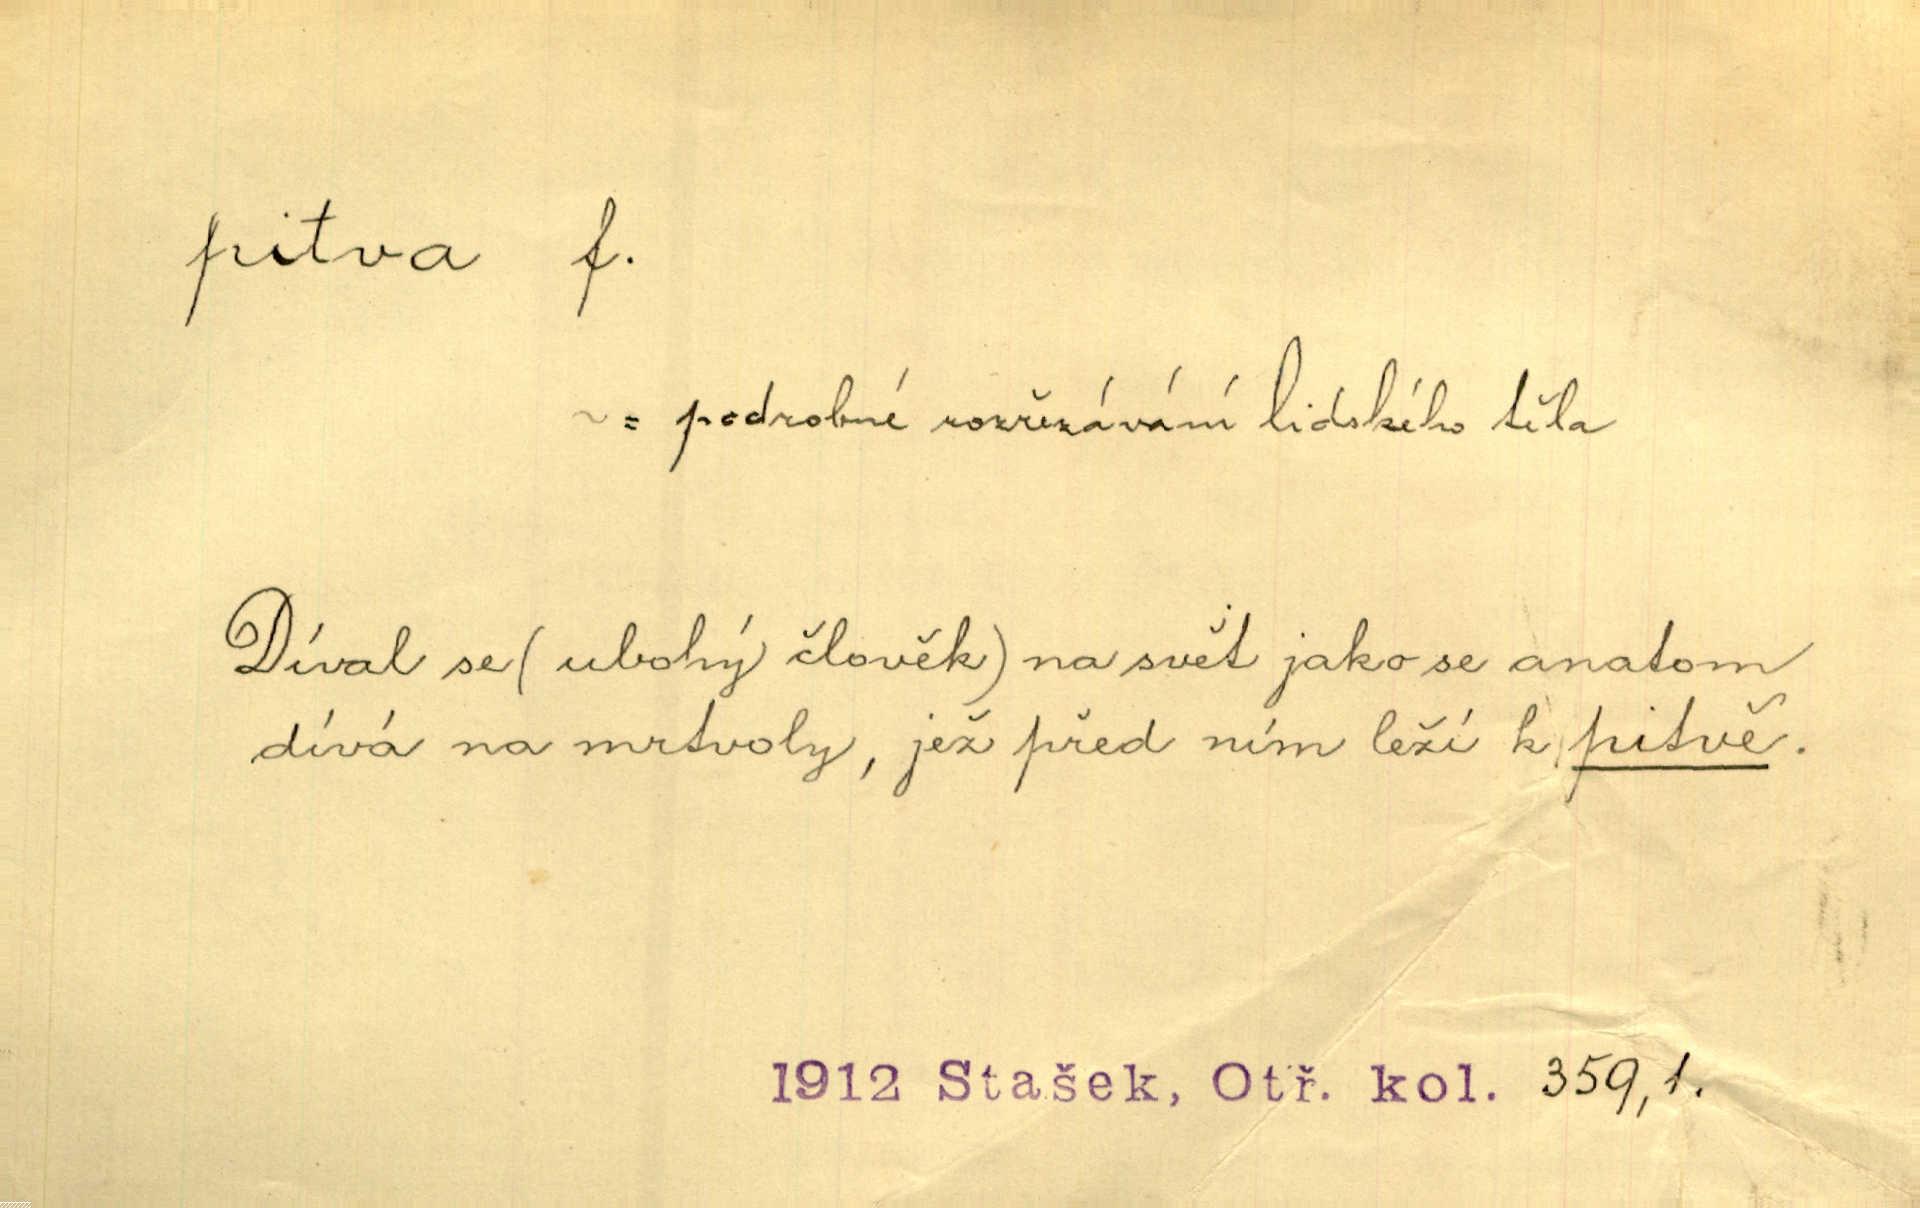 pitva f.
~ = podrobné rozřezávání lidského těla
Díval se (ubohý člověk) na svět jako se anatom
dívá na mrtvoly, jež před ním leží k pitvě.
1912 Stašek, Otř. kol. 359,1.